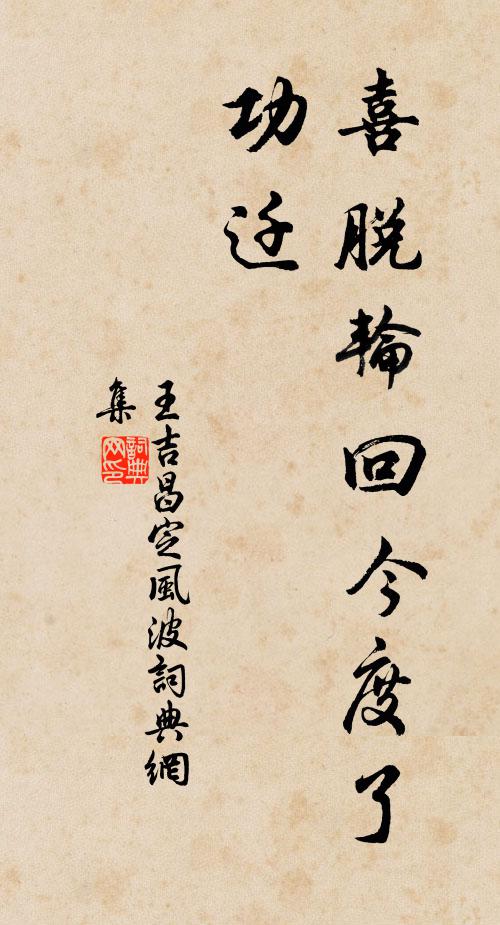 喜脫輪回今度了
功迁
王吉昌定風波詞典網
集
詞典网印